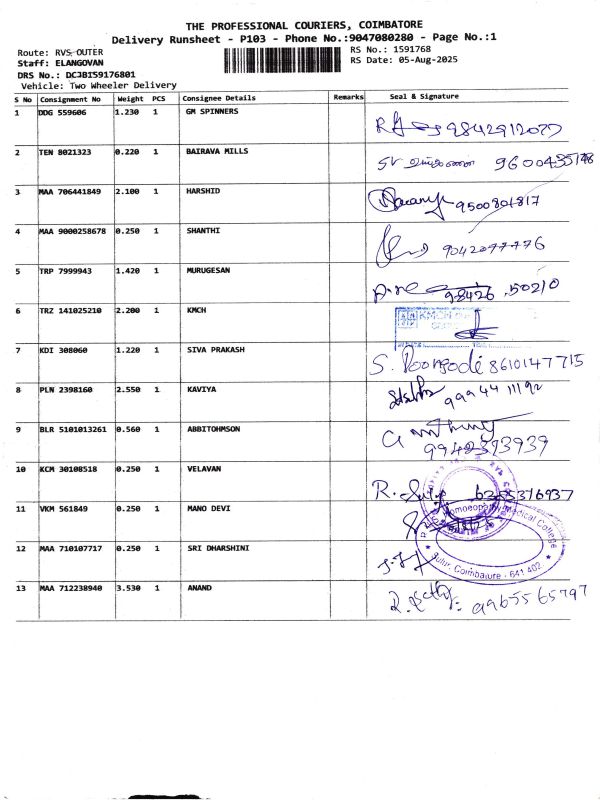 THE PROFESSIONAL COURIERS, COIMBATORE
Delivery Runsheet - P103 - Phone No.:9047080280 - Page No.:1
Route: RVS OUTER
RS No.: 1591768
Staff: ELANGOVAN
RS Date: 05-Aug-2025
DRS No.: DCJB159176801
Vehicle: Two Wheeler Delivery
S No Consignment No Weight PCS Consignee Details Remarks Seal & Signature
1 DDG 559606 1.230 1 GM SPINNERS 9842912077
2 TEN 8021323 0.220 1 BAIRAVA MILLS
3 MAA 706441849 2.100 1 HARSHID 9500801817
4 MAA 9000258678 0.250 1 SHANTHI 9042097776
5 TRP 7999943 1.420 1 MURUGESAN 98426 50210
6 TRZ 141025210 2.200 1 KMCH KMCH
7 KDI 308060 1.220 1 SIVA PRAKASH S. Poongodi 8610147715
8 PLN 2398160 2.550 1 KAVIYA 99944 11192
9 BLR 5101013261 0.560 1 ABBITOHMSON
9942393939
10 KCM 30108518 0.250 1 VELAVAN R.
11 VKM 561849 0.250 1 MANO DEVI
Homoeopathy Medical College
12 MAA 710107717 0.250 1 SRI DHARSHINI
Sulur, Coimbatore - 641 402.
13 MAA 712238940 3.530 1 ANAND 9965565797